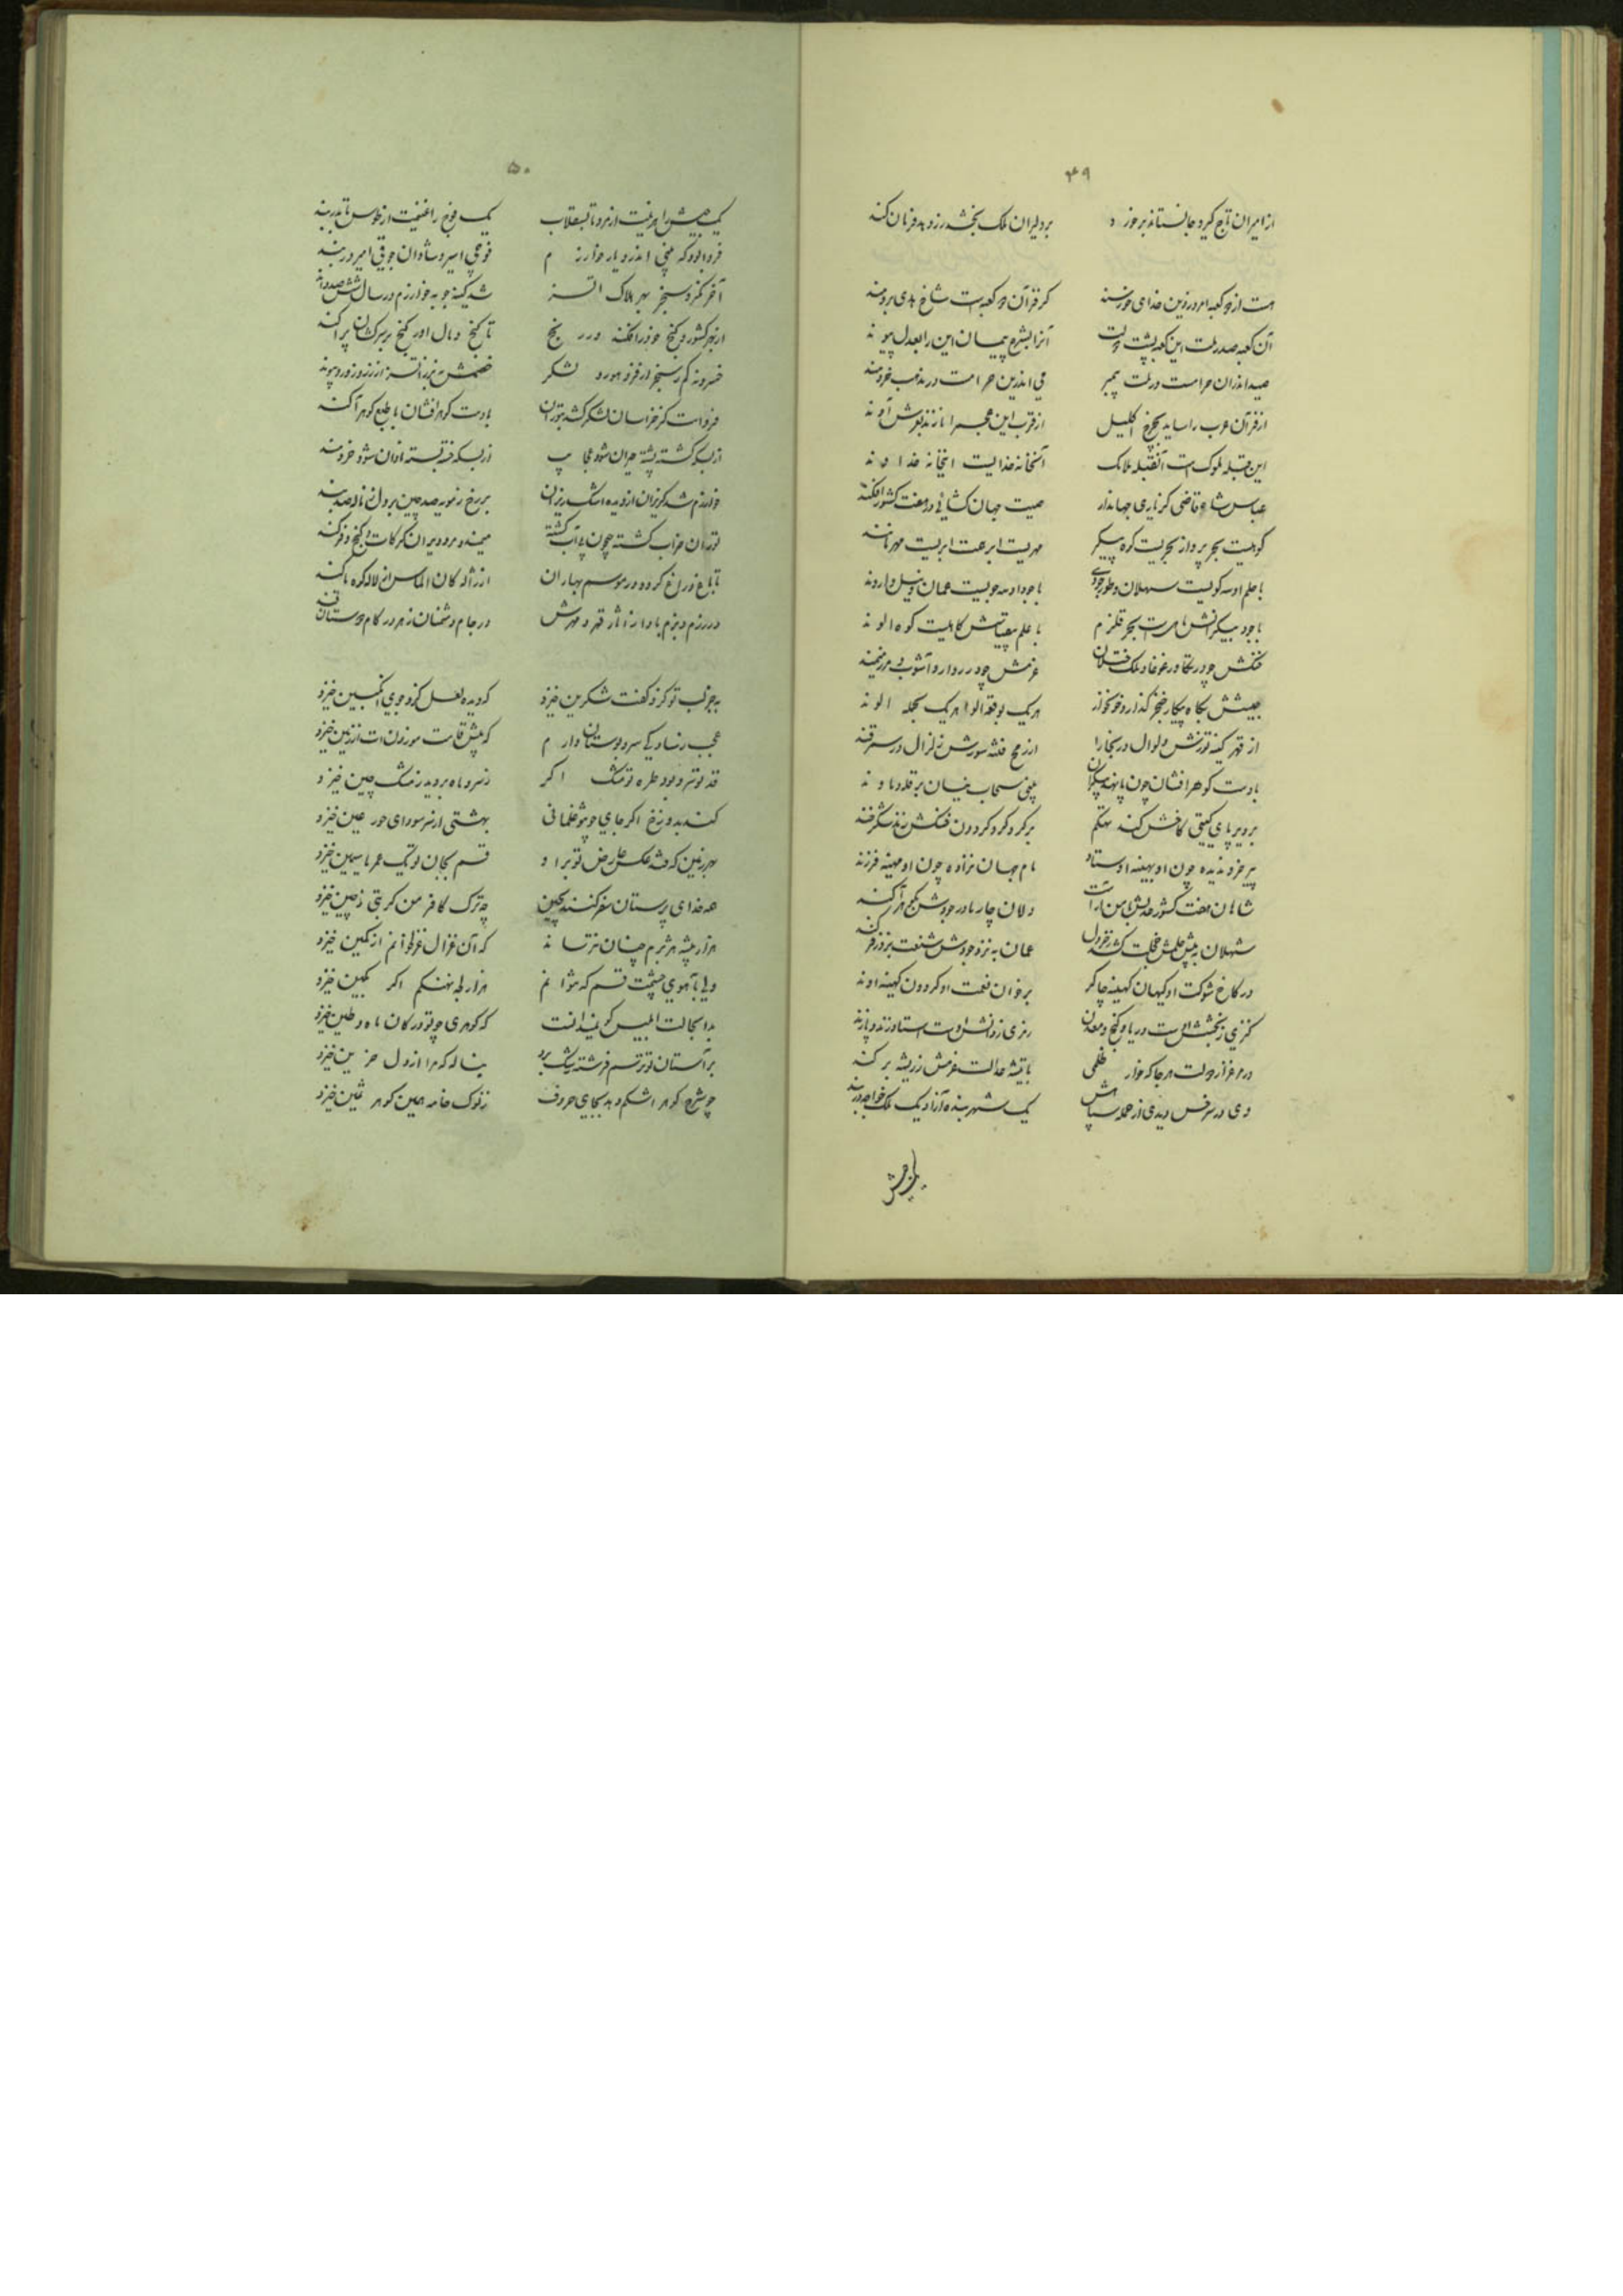 ۴۹
از امیران تاج گیرد جانستاند بر خورد بر دلیران ملک بخشد رزود بد فرمان کند
هست از دو کعبه امروز دین خدای خورسند کز فر آن دو کعبه است شاخ هدی برومند
آن کعبه صدر ملت این کعبه پشت دولت آنرا بشرع پیمان این را بعدل پیوند
صید اندران حرامست در ملت پیمبر می اندرین حرامست در مذهب خردمند
از فر آن عرب را ساید بچرخ اکلیل از قرب این عجم را نازند بعرش آوند
این قبله ملوک است آنقبله ملایک آنخانه خدایست اینخانه خداوند
عباس شاه قاضی کز یاری جهاندار صیت جهان کشائی در هفت کشور افکند
کوهیست بحر پرداز بحریست کوه پیکر مهریست ابر همت ابریست مهر مانند
با حلم او سه کویست سهلان و طور و جودی با جود او سه جویست عمان و نیل و اروند
با جود بیکرانش بحر قلزم با حلم کاهیست کوه الوند
خنکش چو در تکادر غوغا در ملک ختلان عزمش چو در روارو آشوب در مرز میمند
جیشش بگاه پیکار خنجر گذار و خونخوار هر یک بوقعه الوا هر یک بحمله الوند
از قهر کینه توزش ولوال در بخارا از رمح فتنه سوزش زلزال در سمرقند
با دست گوهر افشان چون پا نهد بیکران بینی سحاب نیسان بر قله دماوند
پیر خرد ندیده چون او بهینه استاد مام جهان نزاده چون او مهینه فرزند
شاهان هفت کشور
سهلان به پیش حلمش خجلت کشد ز خردل عمان به نزد جودش شنعت برد ز فرکند
در کاخ شوکت او کیهان کهینه چاکر بر خوان نعمت او گردون کهینه آوند
کنزی ز بخشش اوست دریا و گنج و معدن رمزی ز دانش اوست استا و زند و پازند
در مرغزار دولت هر جا که خار ظلمی با تیشه عدالت عزمش ز ریشه بر کند
دی در سرخس دیدی از حمله سپاهش یک شهر بنده آزاد یک ملک خواجه در بند
۵۰
یک جیش را هزیمت از مرو تا بسقلاب یک فوج را غنیمت از طوس تا بدربند
فردا بود که بینی اندر دیار خوارزم قومی اسیر و شادان جوقی امیر و در بند
آخر نکرد سنجر بهر هلاک اتسز شد کینه جو به خوارزم در سال ششصد و اند
از بهر کشور و گنج خود را فکند در رنج تا گنج و مال آورد
خسرو نه کم ز سنجر در فر و هور و لشکر خصمش نه برتر ز اتسز
فرداست کز خراسان لشکر کشد بتوران با دست گوهر افشان با طبع گوهر آکند
از بسکه کشته پشته حیران شود از بسکه فتنه بسته نادان شود خردمند
خوارزم شه گریزان از دیده اشک ریزان بر رخ ز مویه صد چین بر دل ز ناله صد بند
توران خراب گشته چون
تا باغ و راغ گردد در موسم بهاران از ژاله کان الماس از لاله کوه یاکند
در رزم و بزم بادا ز آثار قهر و مهرش در جام دشمنان زهر در کام دوستان قند
بجز لب تو کزو گفت شکرین خیزد که دیده لعل کزو جوی انگبین خیزد
عجب ز ساد کی سرو بوستان دارم که پیش قامت موزونت از زمین خیزد
قد تو سرو بود طره تو مشک اگر ز سرو ماه بروید ز مشک چین خیزد
کند بدوزخ اگر جای چو تو غلمانی بهشتی از سر سودای حور عین خیزد
بهر زمین که فتد عکس عارض تو بر او قسم بجان تو یک عمر یاسمین خیزد
همه خدای پرستان سفر کنند بچین چه ترک کافر من گر بتی ز چین خیزد
هزار بیشه هژبرم چنان نترساند که آن غزال غزلخوانم از کمین خیزد
ولی بآهوی چشمت قسم که نتوانم هزار بله نهنگم اگر کمین خیزد
بدا بحالت ابلیس کو نمیدانست که گوهری چو تو در کان ماء و طین خیزد
بر آستان تو ترسم فرشته رشک برد بناله که مرا از دل حزین خیزد
چو شرح گوهر اشکم دهد بجای حروف ز نوک خامه همین گوهر ثمین خیزد